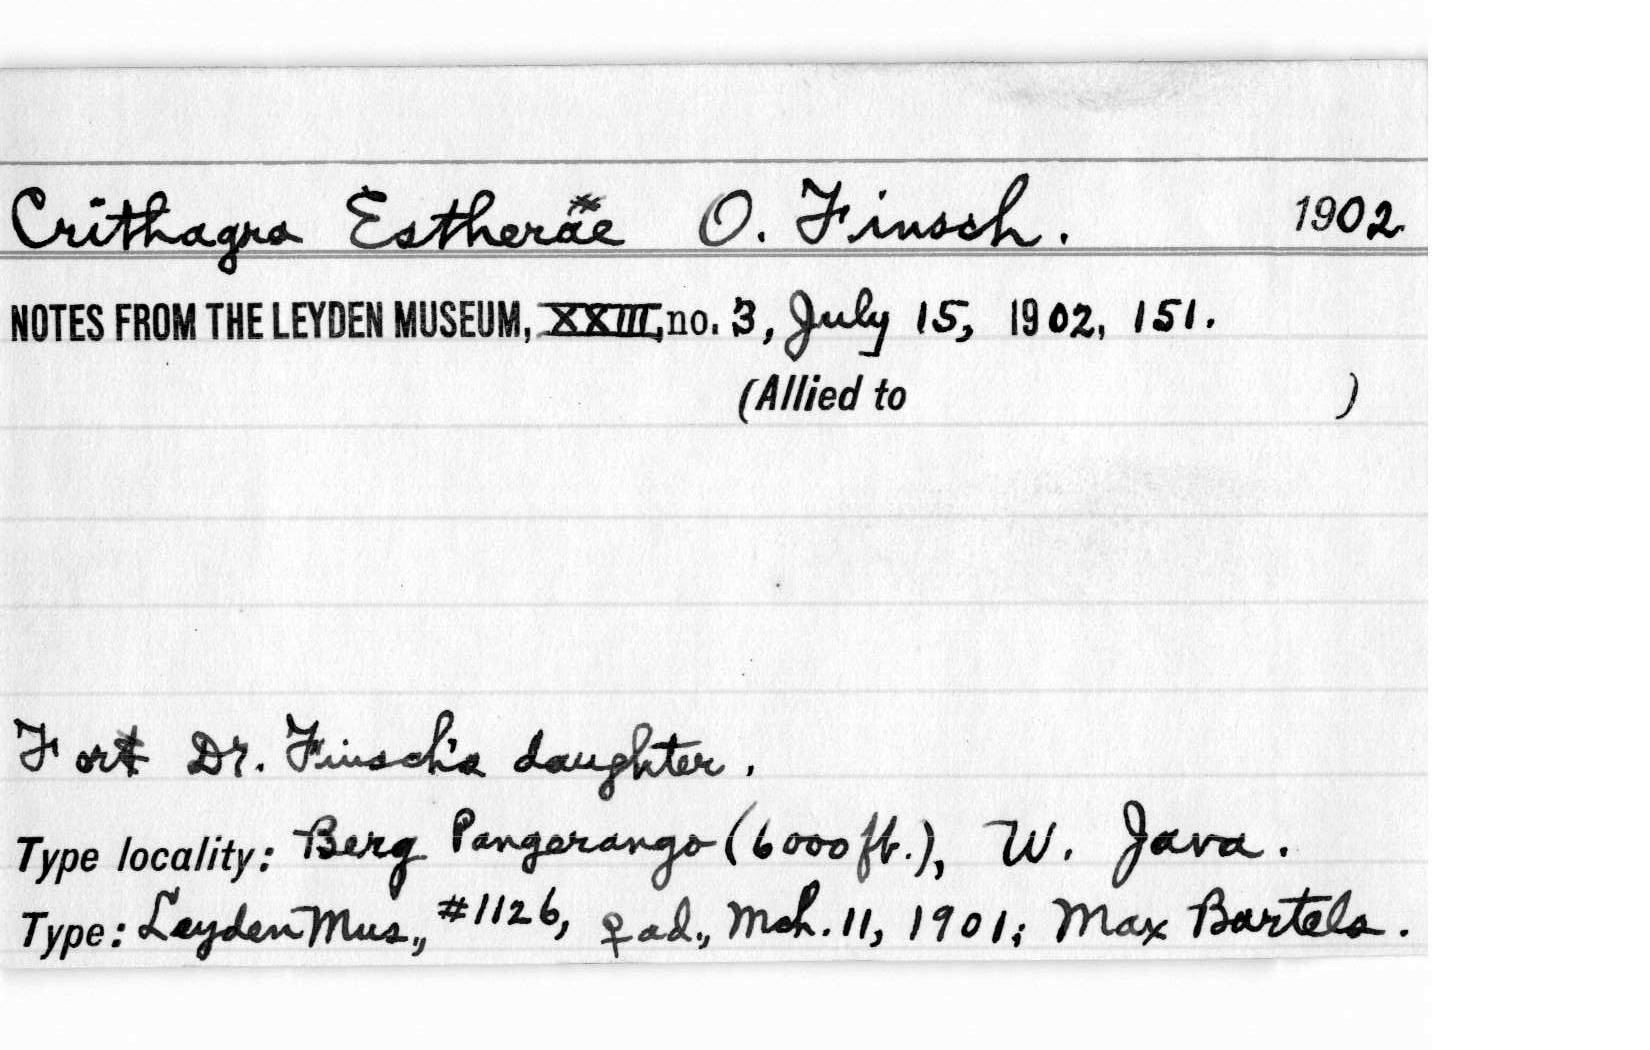 Crithagra Estheræ O. Finsch. 1902
NOTES FROM THE LEYDEN MUSEUM, XXIII, no. 3, July 15, 1902, 151.
(Allied to )
For Dr. Finsch's daughter.
Type locality: Berg Pangerango (6000 ft.), W. Java.
Type: Leyden Mus., #1126, ♀ ad., Mch. 11, 1901; Max Bartels.